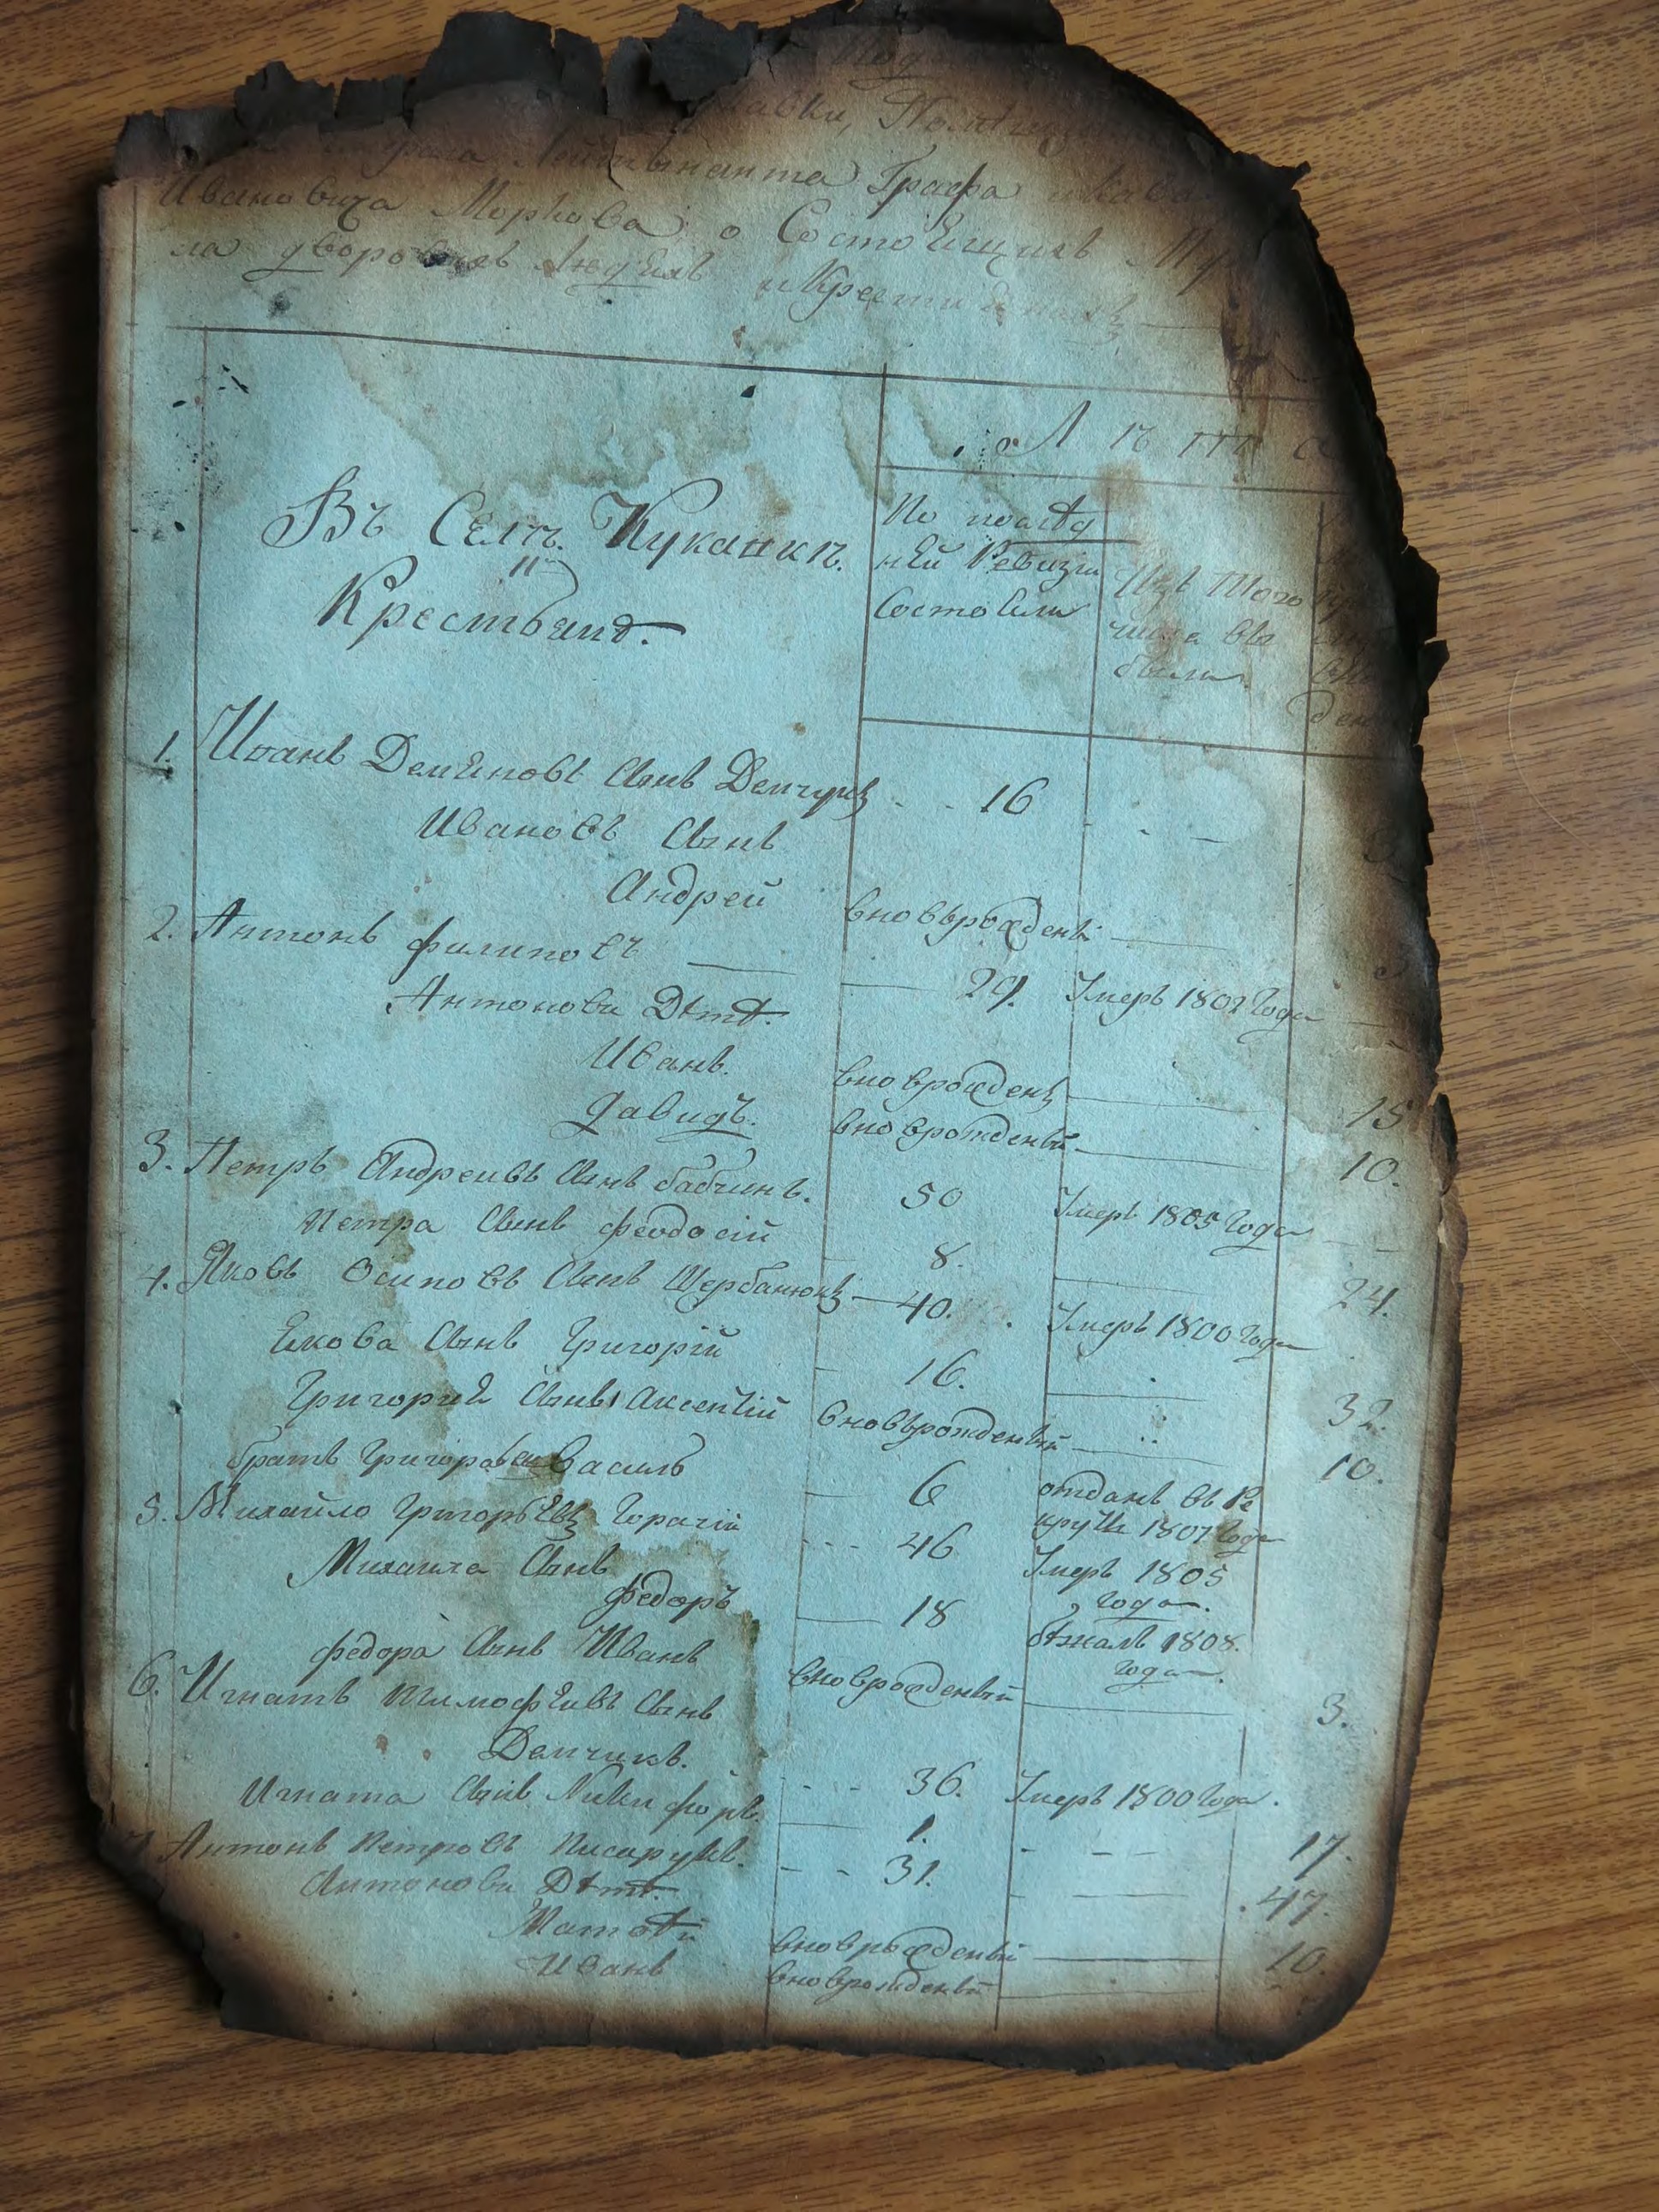 Лейтынанта Графа
Ивановича Моркова о Состоящихъ
ла дворовыхъ людяхъ
и Крестьянахъ
Лѣта
Въ Селѣ Куканкѣ.
Крестьянъ.
По послѣд
ней Ревизіи
Состояли
Изъ того
числа вы
были
1. Иванъ Демяновъ сынъ Демчукъ - - 16 - - -
Ивановъ сынъ
Андрей вновьрожденый
2. Антонъ Филиповъ 29. Умеръ 1802 Года
Антоновы Дѣти.
Иванъ. вноврожденъ 15
Давидъ. вноврожденый 10.
3. Петръ Андреивъ сынъ бабчинъ. 50 Умеръ 1805 Года
Петра сынъ Феодосій 8. 24.
4. Яковъ Осиповъ сынъ Щербанюкъ 40. Умеръ 1800 Года
Якова сынъ Григорій 16. 32.
Григория сынъ Аксентій вновьрожденый 10.
братъ Григоровъ Василь 6 отданъ въ Ре
круты 1807 Года
5. Михайло Григорьевъ Горачій - - - 46 Умеръ 1805
года.
Михаила сынъ
Федоръ 18 бѣжалъ 1808.
года.
Федора сынъ Иванъ вноврожденый 3.
6. Игнатъ Тимофѣивъ сынъ
Демчикъ. - - - 36. Умеръ 1800 Года.
Игната сынъ Никифоръ. 1. - - - 17.
7. Антонъ Петровъ Писарукъ. - - 31. 47.
Антоновы Дѣти.
Матвѣй вноврожденый 10.
Иванъ вноврожденый